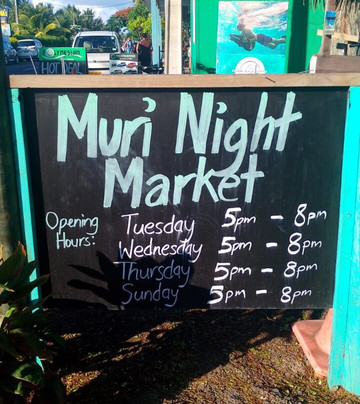 HOT DEAL
Muri Night
Market
Opening
Hours:
Tuesday 5pm - 8pm
Wednesday 5pm - 8pm
Thursday 5pm - 8pm
Sunday 5pm - 8pm